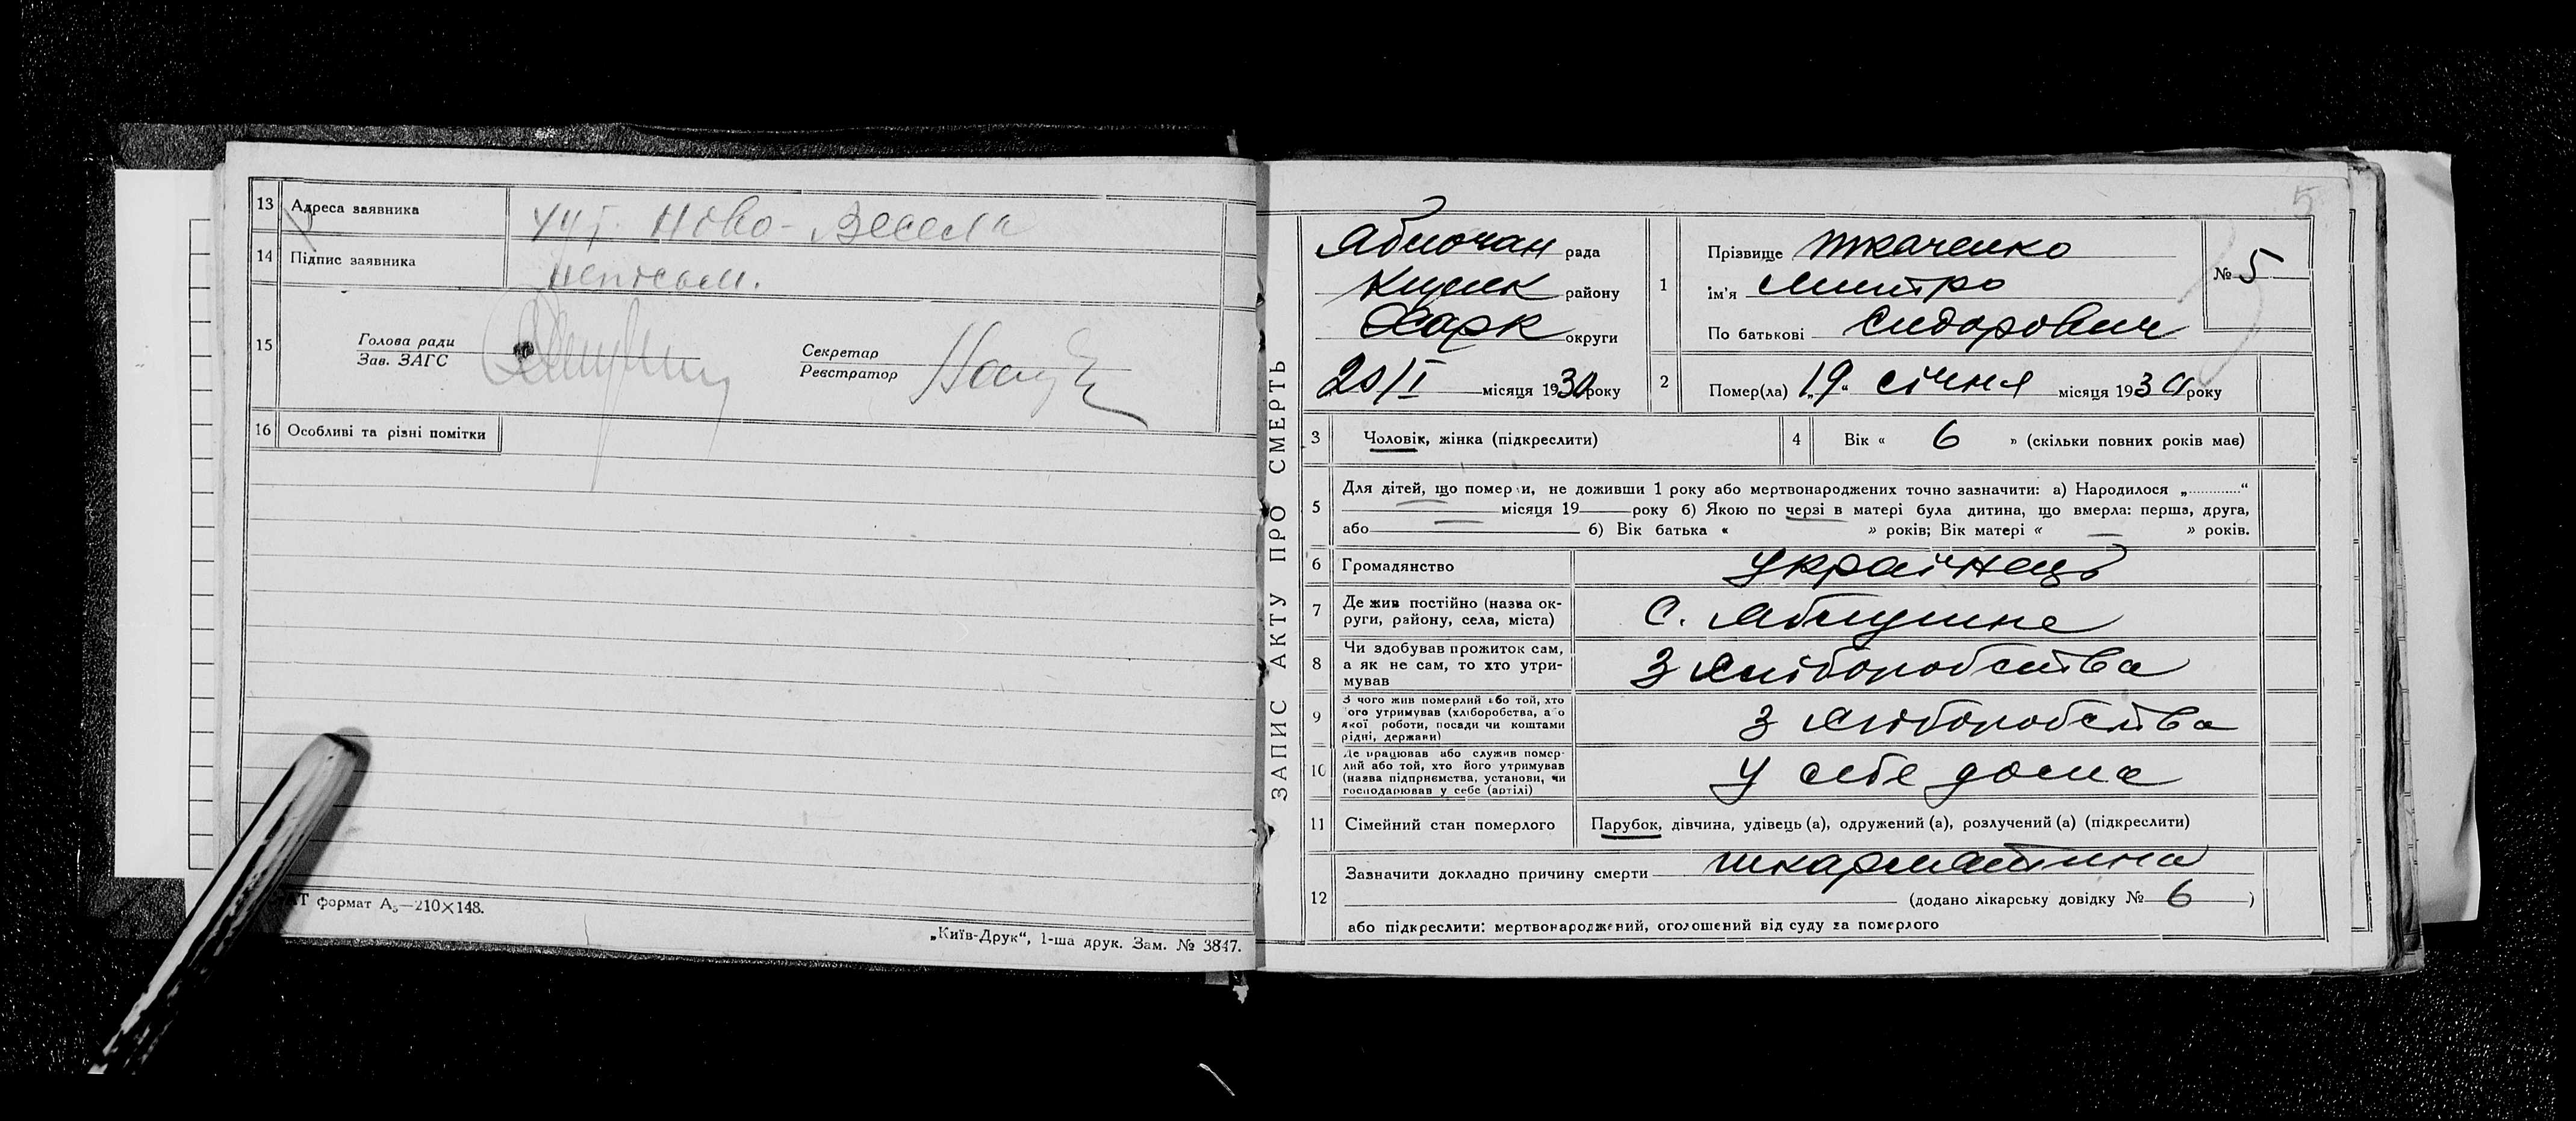 13 Адреса заявника Ново-Весела
14 Підпис заявника неписьм.
15 Голова ради
Зав. ЗАГС
Секретар
Реєстратор
16 Особливі та різні помітки
формат А₅—210×148.
„Київ-Друк“, 1-ша друк. Зам. № 3847.
ЗАПИС АКТУ ПРО СМЕРТЬ
5
Яблочан рада
району
Харк округи
20/I місяця 1930 року
1 Прізвище Ткаченко
ім'я Митро
По батькові Сидорович
№ 5
2 Помер(ла) „19“ січня місяця 1930 року
3 Чоловік, жінка (підкреслити)
4 Вік « 6 » (скільки повних років має)
5 Для дітей, що померли, не доживши 1 року або мертвонароджених точно зазначити: а) Народилося „............“
місяця 19 року б) Якою по черзі в матері була дитина, що вмерла: перша, друга,
або б) Вік батька « » років; Вік матері « — » років.
6 Громадянство українець
7 Де жив постійно (назва ок-
руги, району, села, міста)
с. Яблушне
8 Чи здобував прожиток сам,
а як не сам, то хто утри-
мував
З хліборобства
9 З чого жив померлий або той, хто
його утримував (хліборобства, або
якої роботи, посади чи коштами
рідні, держави)
З хліборобства
10 Де працював або служив помер-
лий або той, хто його утримував
(назва підприємства, установи, чи
господарював у себе (артілі)
У себе дома
11 Сімейний стан померлого Парубок, дівчина, удівець (а), одружений (а), розлучений (а) (підкреслити)
12 Зазначити докладно причину смерти шкарлатина
(додано лікарську довідку № 6 )
або підкреслити: мертвонароджений, оголошений від суду за померлого